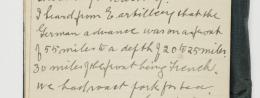 I heard from E artillery that the
German advance was on a front
of 55 miles to a depth of 20 to 25 miles
30 miles of the front being French.
We had roast pork for tea.